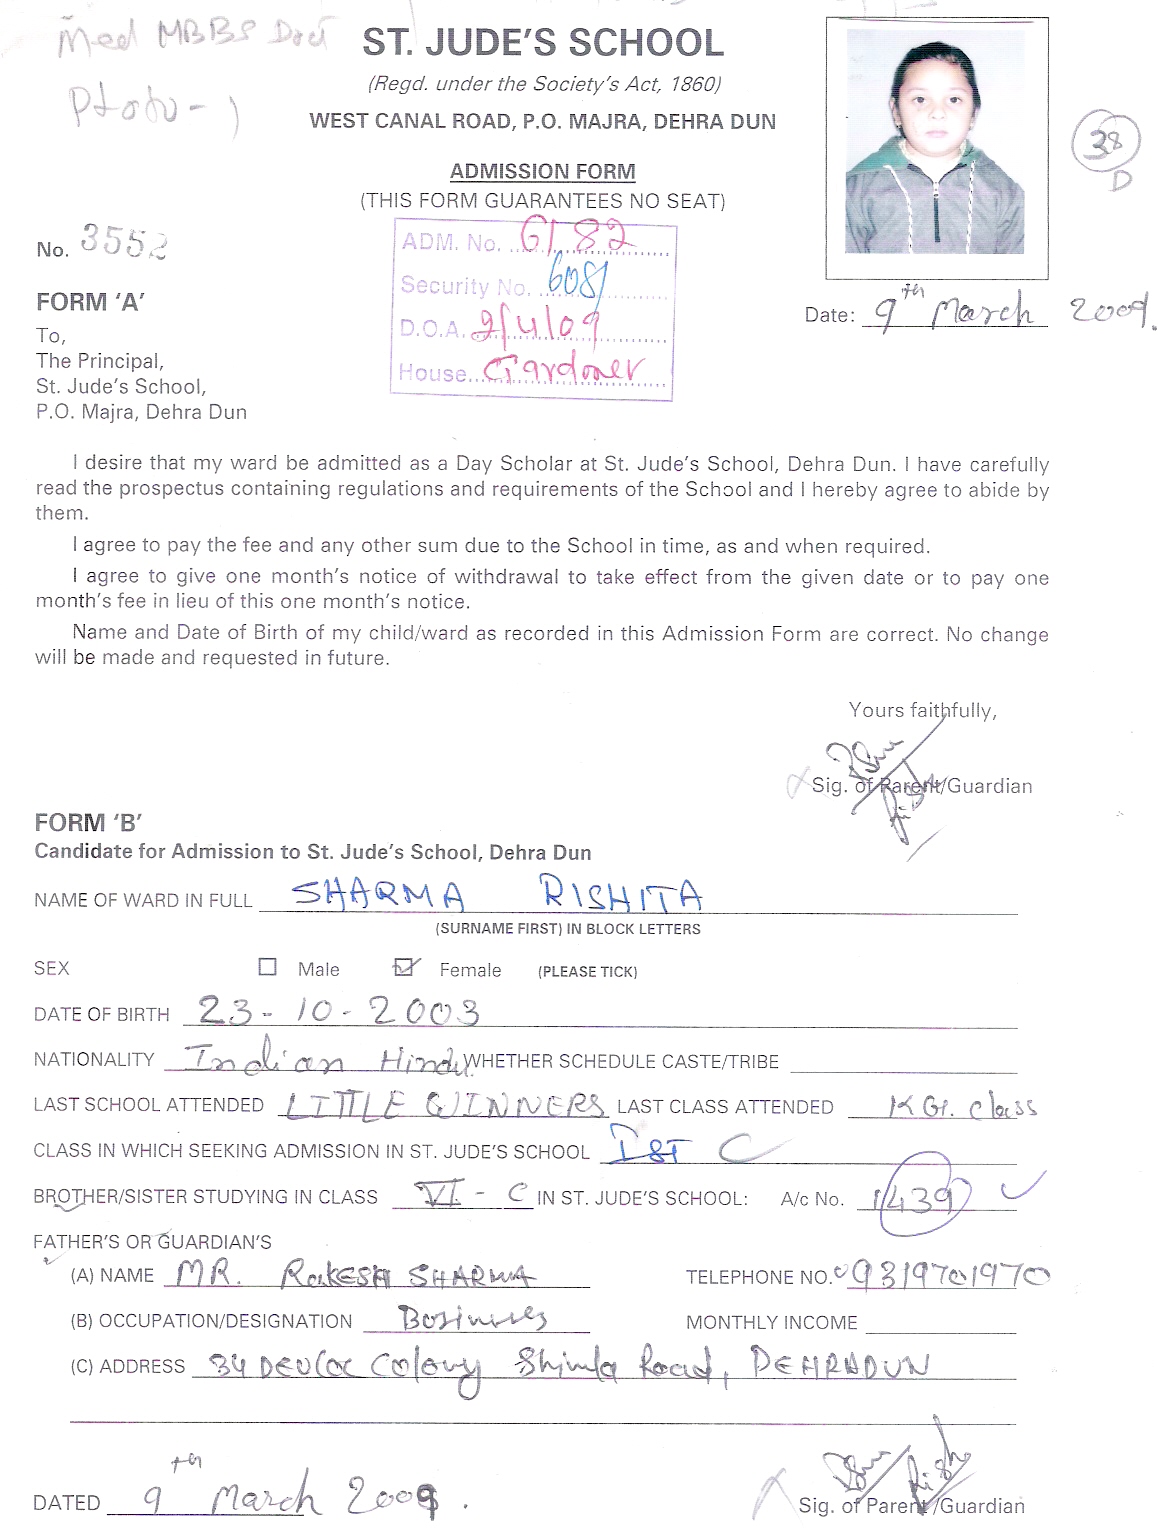 Med MBBS Doct
ST. JUDE'S SCHOOL
(Regd. under the Society's Act, 1860)
WEST CANAL ROAD, P.O. MAJRA, DEHRA DUN
38
D
ADMISSION FORM
(THIS FORM GUARANTEES NO SEAT)
No. 3552
ADM. No. G182
Security No. 6081
D.O.A. 2/4/09
House Gardoner
Date: 9th March 2009.
FORM 'A'
To,
The Principal,
St. Jude's School,
P.O. Majra, Dehra Dun
I desire that my ward be admitted as a Day Scholar at St. Jude's School, Dehra Dun. I have carefully
read the prospectus containing regulations and requirements of the School and I hereby agree to abide by
them.
I agree to pay the fee and any other sum due to the School in time, as and when required.
I agree to give one month's notice of withdrawal to take effect from the given date or to pay one
month's fee in lieu of this one month's notice.
Name and Date of Birth of my child/ward as recorded in this Admission Form are correct. No change
will be made and requested in future.
Yours faithfully,
Sig. of Parent/Guardian
FORM 'B'
Candidate for Admission to St. Jude's School, Dehra Dun
NAME OF WARD IN FULL SHARMA RISHITA
(SURNAME FIRST) IN BLOCK LETTERS
SEX Male Female (PLEASE TICK)
DATE OF BIRTH 23-10-2003
NATIONALITY Indian Hindu WHETHER SCHEDULE CASTE/TRIBE
LAST SCHOOL ATTENDED LITTLE WINNERS LAST CLASS ATTENDED K G. Class
CLASS IN WHICH SEEKING ADMISSION IN ST. JUDE'S SCHOOL IST C
BROTHER/SISTER STUDYING IN CLASS VI - C IN ST. JUDE'S SCHOOL: A/c No. 1439
FATHER'S OR GUARDIAN'S
(A) NAME MR. RAKESH SHARMA TELEPHONE NO. 09319701970
(B) OCCUPATION/DESIGNATION Bosinues MONTHLY INCOME
(C) ADDRESS 34 Colony Shimla Road, DEHRADUN
DATED 9th March 2009. Sig. of Parent/Guardian